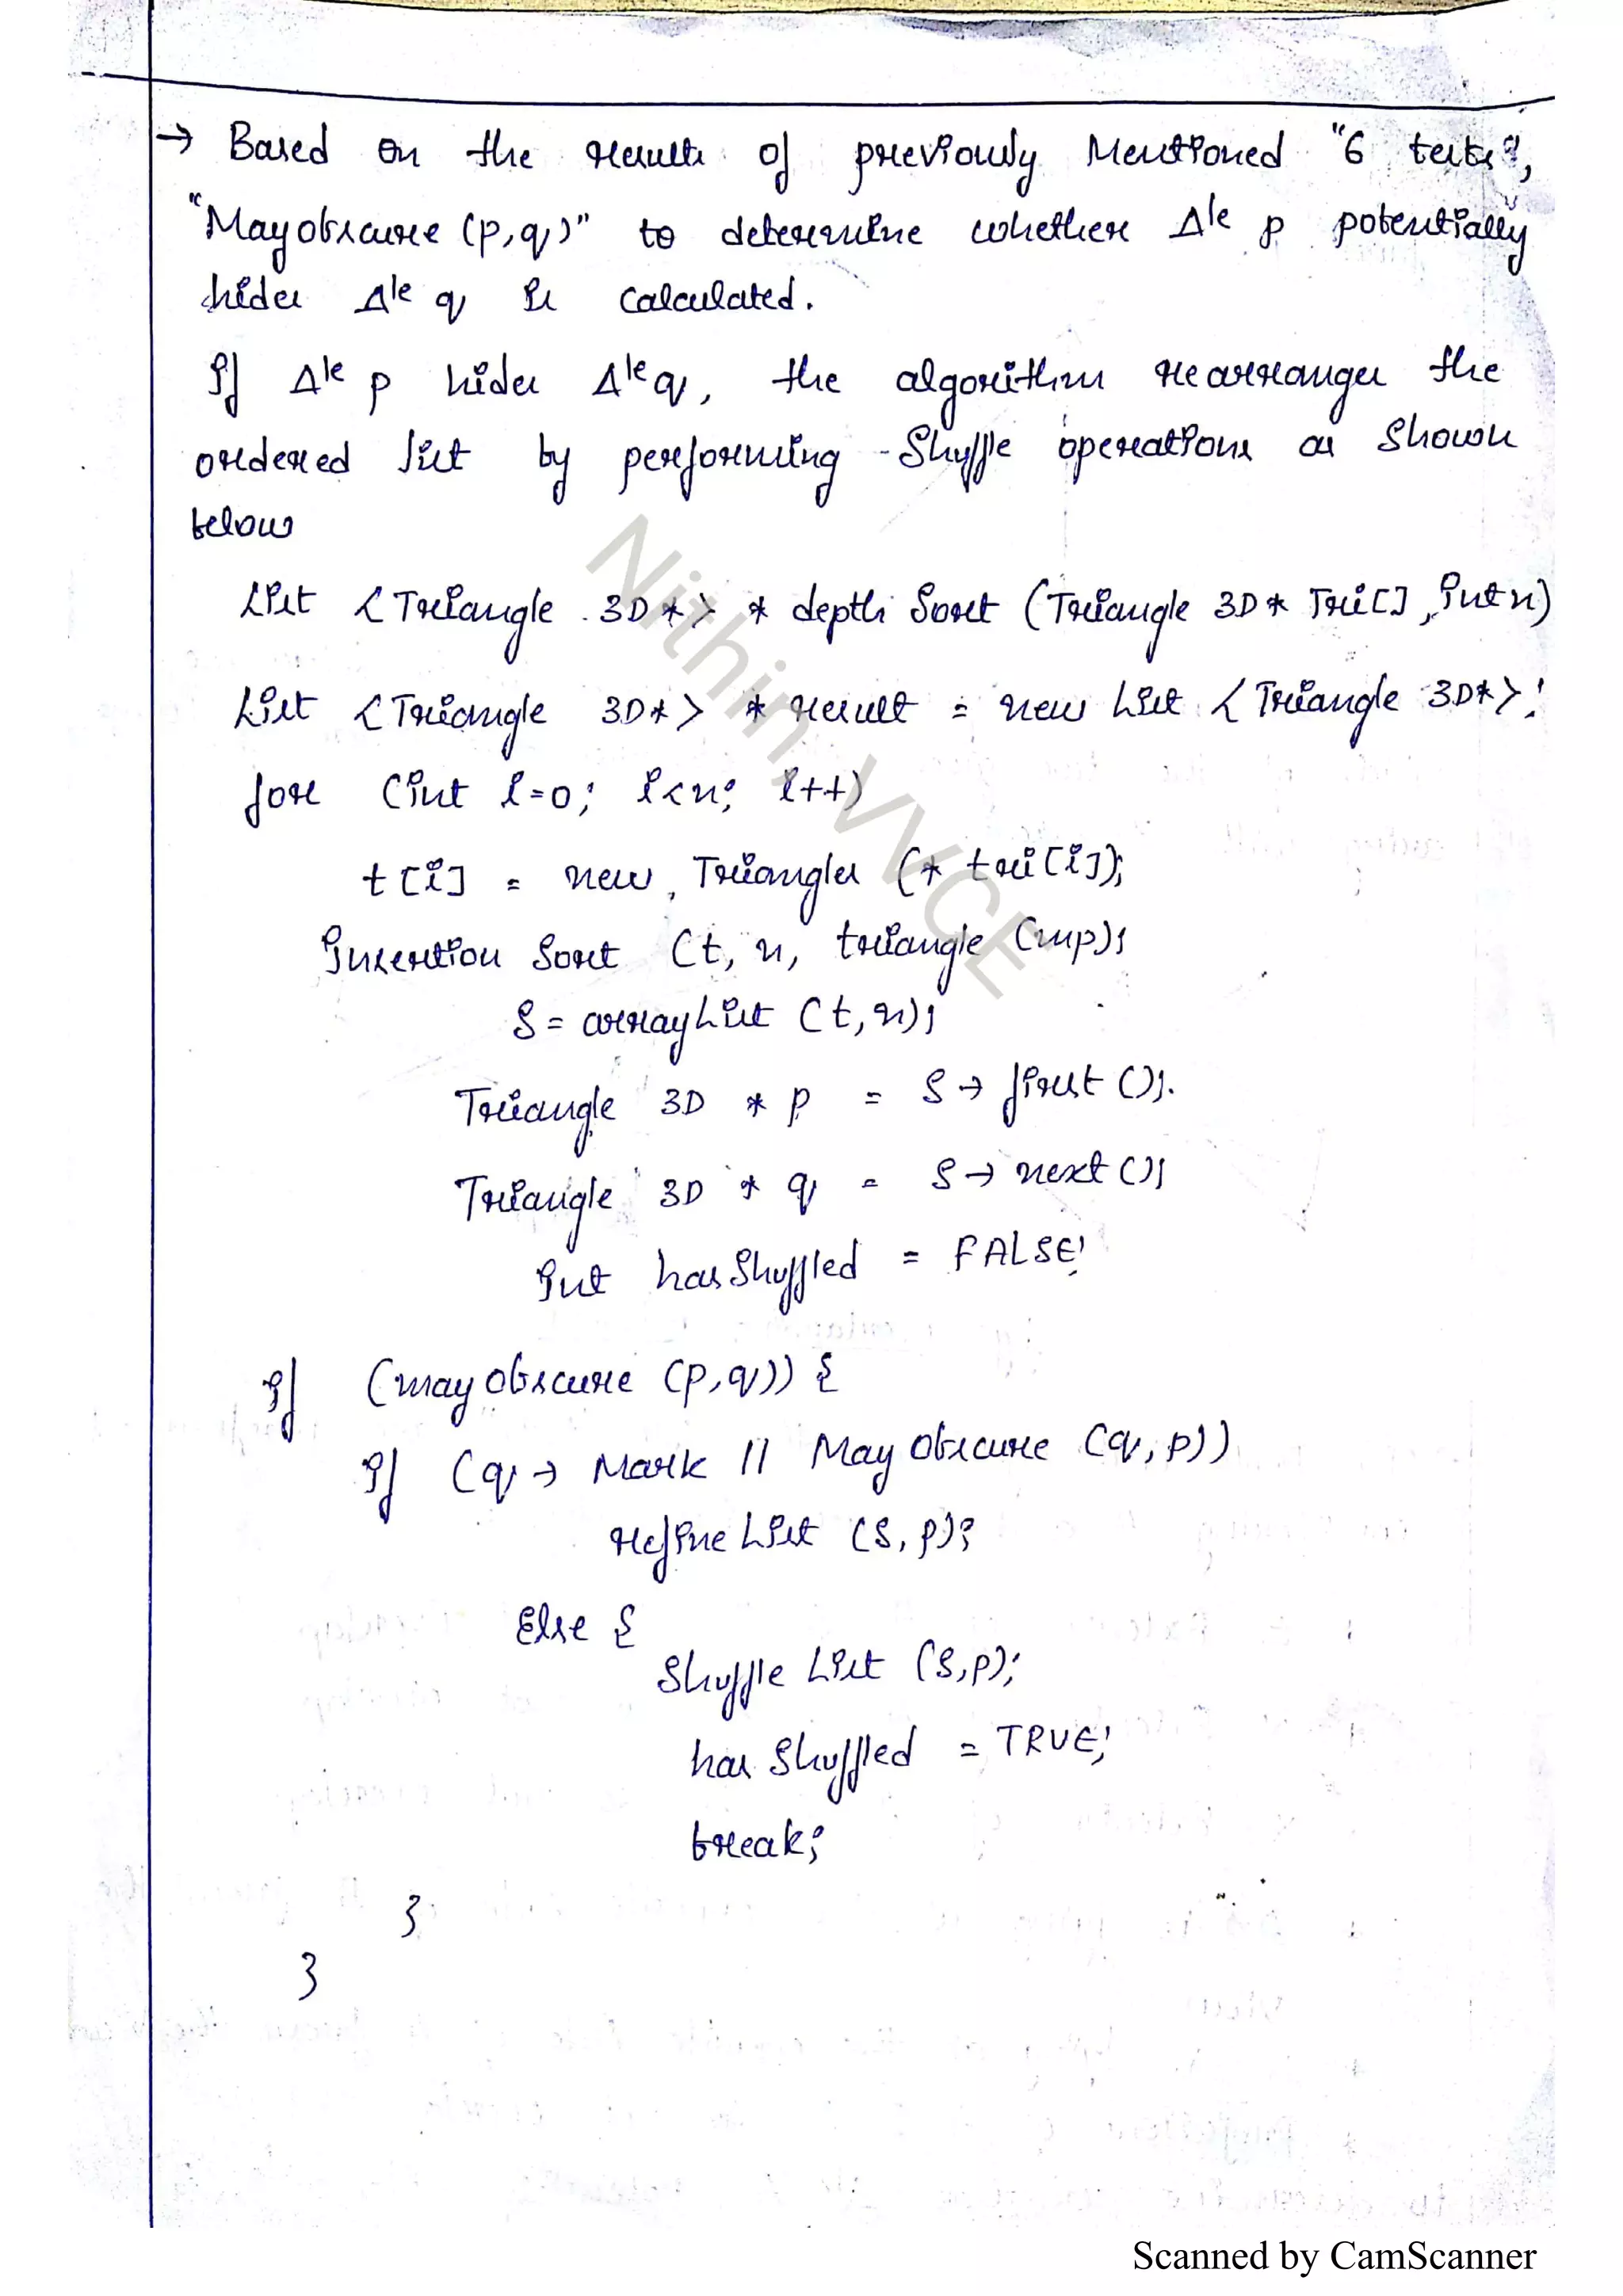 → Based on the results of previously Mentioned "6 tests",
"Mayobscure (p,q)" to determine whether Δle p potentially
hides Δle q is calculated.
If Δle p hides Δle q, the algorithm rearranges the
ordered list by performing Shuffle operations as shown
below
List <Triangle 3D*> * depth Sort (Triangle 3D* Tri[], int n)
List <Triangle 3D*> * result = new List <Triangle 3D*>;
for (int i=0; i<n; i++)
t[i] = new Triangles (* tri[i]);
Insertion Sort (t, n, triangle (mp);
S = arrayList (t, n);
Triangle 3D * p = S → first ();
Triangle 3D * q = S → next ();
Int hasShuffled = FALSE;
If (may obscure (p,q)) {
If (q → Mark || May Obscure (q,p))
refine List (S, p);
Else {
Shuffle List (S,p);
has Shuffled = TRUE;
break;
}
}
Nithin, VVCE
Scanned by CamScanner